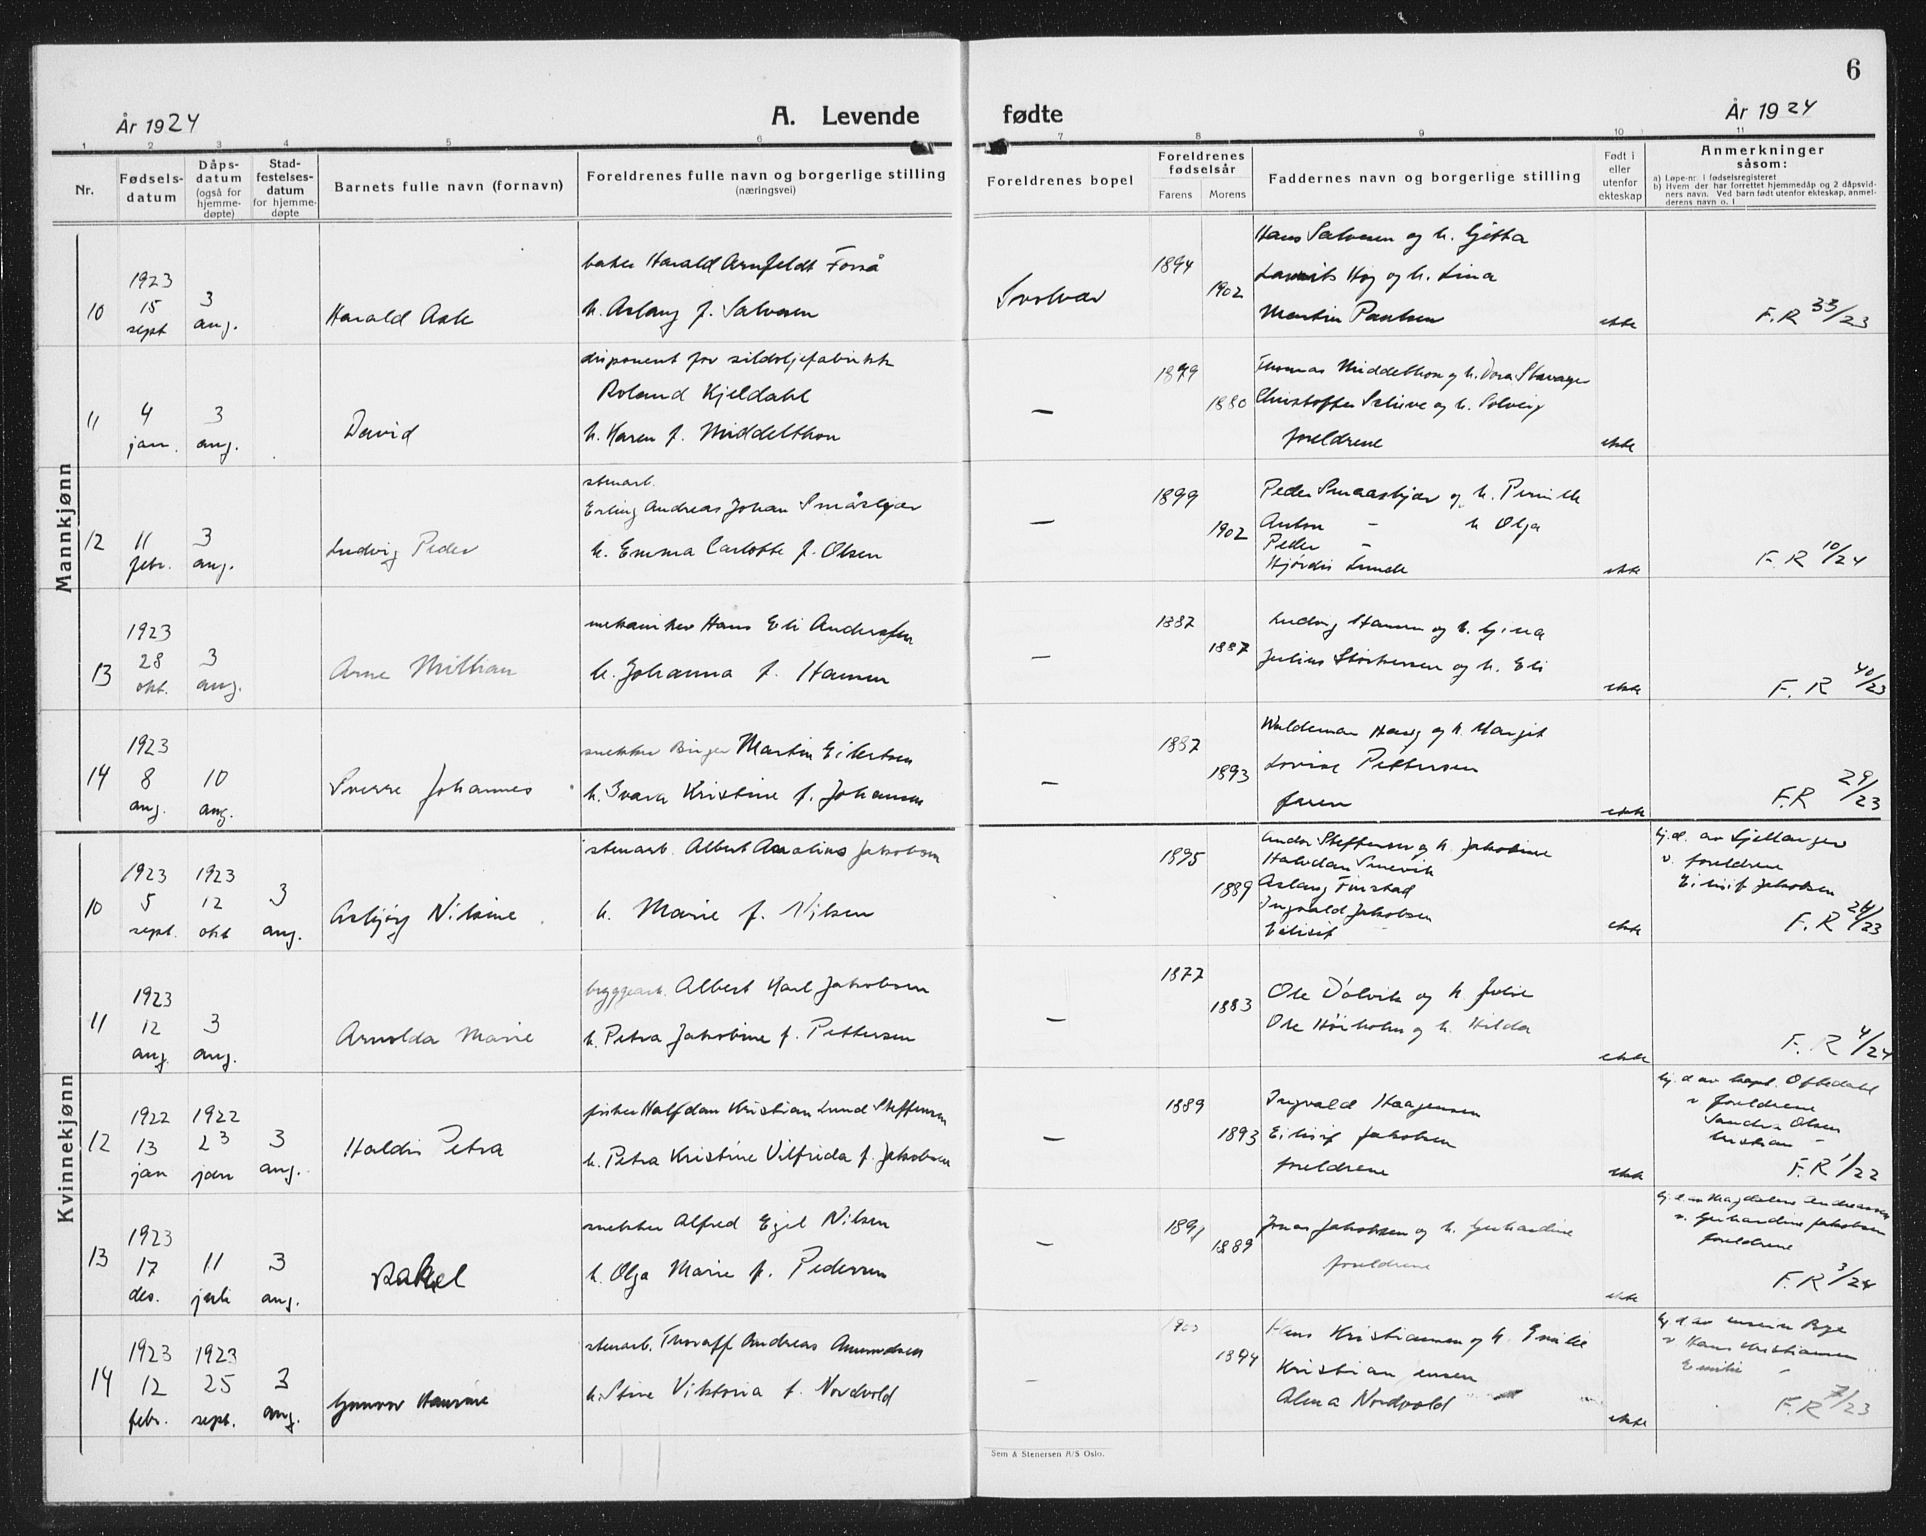 6
År 1924
A. Levende
fødte
År 1924
1 2 3 4 5 6 7 8 9 10 11
Nr.
Fødsels-
datum
Dåps-
datum
(også for
hjemme-
døpte)
Stad-
festelses-
datum
for hjemme-
døpte
Barnets fulle navn (fornavn)
Foreldrenes fulle navn og borgerlige stilling
(næringsvei)
Foreldrenes bopel
Foreldrenes
fødselsår
Farens Morens
Faddernes navn og borgerlige stilling
Født i
eller
utenfor
ekteskap
Anmerkninger
såsom:
a) Løpe-nr. i fødselsregisteret
b) Hvem der har forrettet hjemmedåp og 2 dåpsvid-
ners navn. Ved barn født utenfor ekteskap, anmel-
derens navn o. l
Mannkjønn
10
1923
15
sept
3
aug.
Harald Asle
baker Harald Arnfeldt Forså
h. Aslaug f. Salvesen
Svolvær
1894
1902
Hans Salvesen og h. Gitta
Lauritz Høy og h. Lina
Martin Paulsen
ekte
F.R 33/23
11
4
jan.
3
aug.
David
disponent for sildoljefabrikk
Roland Kjeldahl
h. Karen f. Middelthon
—
1879
1880
Thomas Middelthon og h. Dora Stavanger
Christoffer Schive og h. Solveig
foreldrene
ekte
12
11
febr.
3
aug.
Ludvig Peder
stenarb.
Erling Andreas Johan Småskjær
h. Emma Carlotte f. Olsen
—
1899
1902
Peder Smaaskjær og h. Pernille
Anton — h Olga
Peder —
Hjørdis Lunde
ekte
F.R 10/24
13
1923
28
okt.
3
aug.
Arne Millian
mekaniker Hans Eli Anderssen
h. Johanna f. Hansen
—
1887
1887
Ludvig Hansen og h. Gina
Julius Størkersen og h. Eli
ekte
F. R 40/23
14
1923
8
aug.
10
aug.
Sverre Johannes
snekker Birger Martin Eilertsen
h. Svava Kristine f. Johansen
—
1887
1893
Waldemar Haug og h Margit
Lovise Pettersen
faren
ekte
F.R 29/23
Kvinnekjønn
10
1923
5
sept.
1923
12
okt
3
aug.
Asbjørg Nilsine
stenarb. Albert Analius Jakobsen
h. Marie f. Nilsen
1895
1889
Andor Steffensen og h. Jakobine
Halvdan Smevik
Aslaug Finstad
Ingvald Jakobsen
Eilisif —
ekte
hj.d. av Gjellanger
v. foreldrene
Eilisif Jakobsen
F.R 24/23
11
1923
12
aug.
3
aug.
Arnolda Marie
bryggearb. Albert Karl Jakobsen
h. Petra Jakobine f. Pettersen
—
1877
1883
Ole Dalvik og h Julie
Ole Høiholm og h. Hilda
ekte
F. R 4/24
12
1922
13
jan
1922
23
jan
3
aug.
Haldis Petra
fisker Halfdan Kristian Lund Steffensen
h. Petra Kristine Vilfrida f. Jakobsen
—
1889
1893
Ingvald Haagensen
Eilisif Jakobsen
foreldrene
ekte
hj. d av kapt. Oftedahl
v foreldrene
Sandra Olsen
Kristian —
F.R 1/22
13
1923
17
des.
11
juli
3
aug.
Rakel
snekker Alfred Egil Nilsen
h. Olga Marie f. Pedersen
—
1891
1889
Jonas Jakobsen og h. Gerhardine
foreldrene
ekte
hj. d av Magdalene Andreassen
v. Gerhardine Jakobsen
foreldrene
F.R 3/24
14
1923
12
febr.
1923
25
sept.
3
aug.
Gunvor Hansine
stenarb. Thoralf Andreas Amundsen
h. Stine Viktoria f. Nordvold
—
1903
1894
Hans Kristiansen og h. Emilie
Kristian ensen
Alma Nordvold
ekte
hj d av Bye
v Hans Kristiansen
Emilie —
F.R 7/23
Sem & Stenersen A/S Oslo.